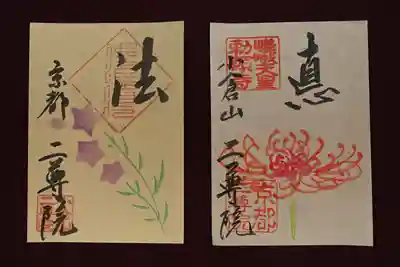 法
京都
二尊院
恵
嵯峨天皇
勅願寺
小倉山
二尊院
京都